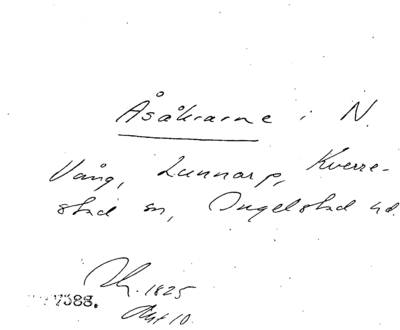 Åsåkrarne i N.
Vång, Lunnarp, Kverre-
stad sn, Ingelstad hd.
1825
Akt 10.
7388.